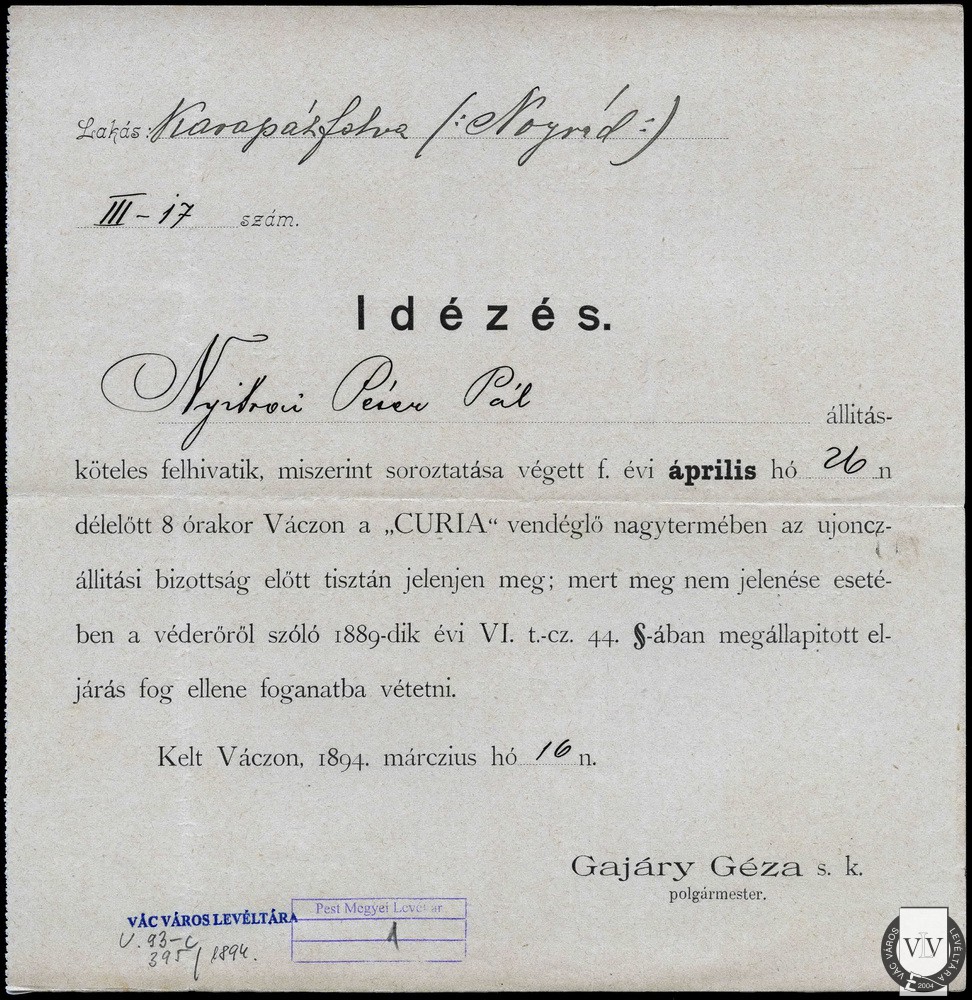 Lakás: Karapázfalva (: Nográd :)
III – 17 szám.
Idézés.
Nyitrai Péter Pál állitás-
köteles felhivatik, miszerint soroztatása végett f. évi április hó 26 n
délelőtt 8 órakor Váczon a „CURIA“ vendéglő nagytermében az ujoncz-
állitási bizottság előtt tisztán jelenjen meg; mert meg nem jelenése eseté-
ben a véderőről szóló 1889-dik évi VI. t.-cz. 44. §-ában megállapitott el-
járás fog ellene foganatba vétetni.
Kelt Váczon, 1894. márczius hó 16 n.
Gajáry Géza s. k.
polgármester.
VÁC VÁROS LEVÉLTÁRA
V. 93-c
395/1894.
Pest Megyei Levéltár
1
VÁC VÁROS LEVÉLTÁRA
VLV
2004